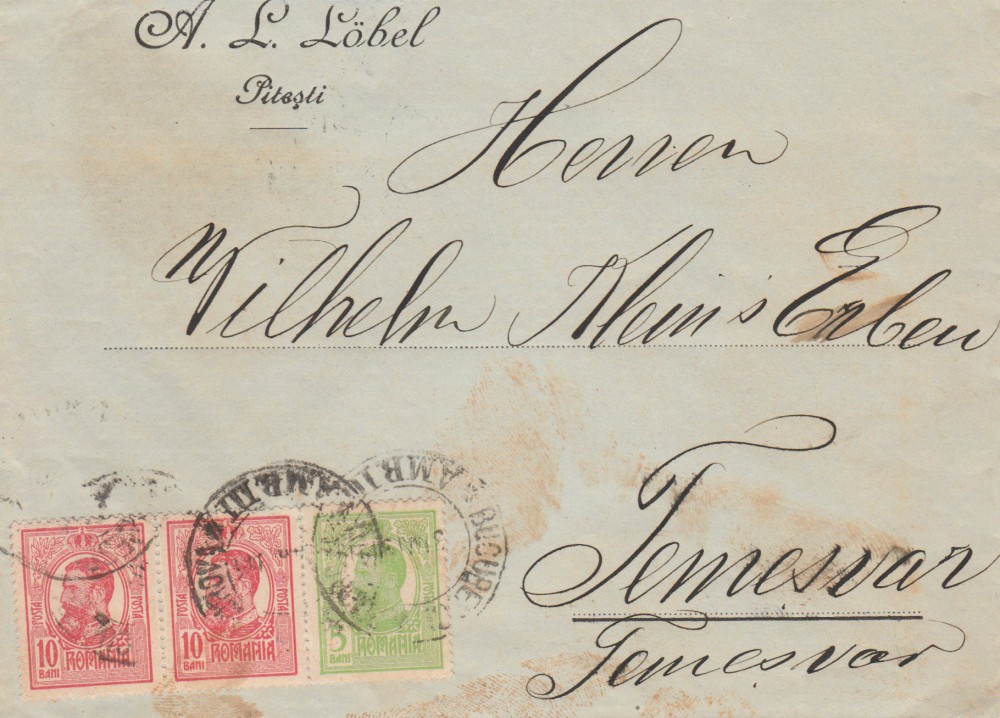 A. L. Löbel
Pitești
Herren
Wilhelm Klein's Erben
Temesvar
Temesvar
AMB. III
AMB.
BUCURE
POSTA POSTA
10 BANI ROMANIA
POSTA POSTA
10 BANI ROMANIA
5 BANI ROMANIA